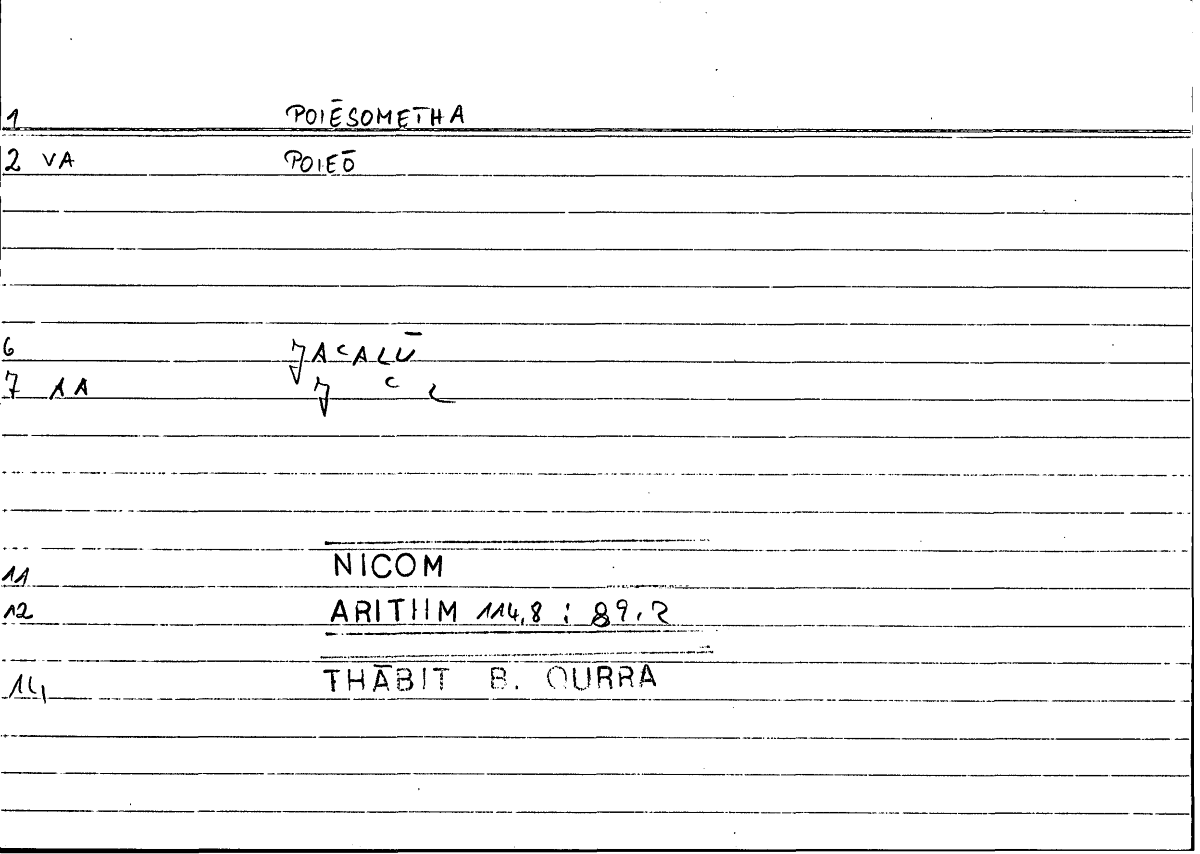 1 POIĒSOMETHA
2 VA POIEŌ
6 ǦAᶜALŪ
7 AA Ǧ ᶜ L
11 NICOM
12 ARITHM 114,8 ; 89,2
14 THĀBIT B. QURRA